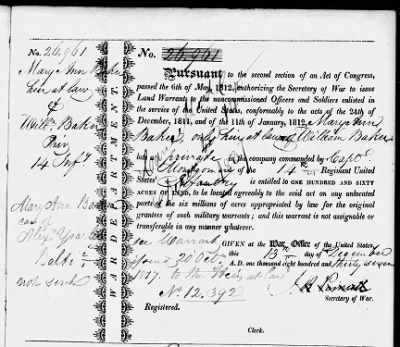 No. 26.961
Mary Ann Baker
heir at law
of
Willm. Baker
14 Infy
Mary Ann Baker
care of
Balto
not send
WAR DEPARTMENT.
No. 26.961
Pursuant to the second section of an Act of Congress,
passed the 6th of May, 1812, authorizing the Secretary of War to issue
Land Warrants to the noncommissioned Officers and Soldiers enlisted in
the service of the United States, conformably to the acts of the 24th of
December, 1811, and of the 11th of January, 1812, Mary Ann
Baker, only heir at law of William Baker
late a private in the company commanded by Capt.
Montgomery of the 14th Regiment United
States' Infantry is entitled to ONE HUNDRED AND SIXTY
ACRES OF LAND, to be located agreeably to the said act on any unlocated
parts of the six millions of acres appropriated by law for the original
grantees of such military warrants; and this warrant is not assignable or
transferable in any manner whatever.
GIVEN at the War Office of the United States,
this 13th day of December
A. D. one thousand eight hundred and thirty seven
Secretary of War.
Warrant
20 Oct.
1817. to the Heirs at law
No. 12.392
Registered.
Clerk.